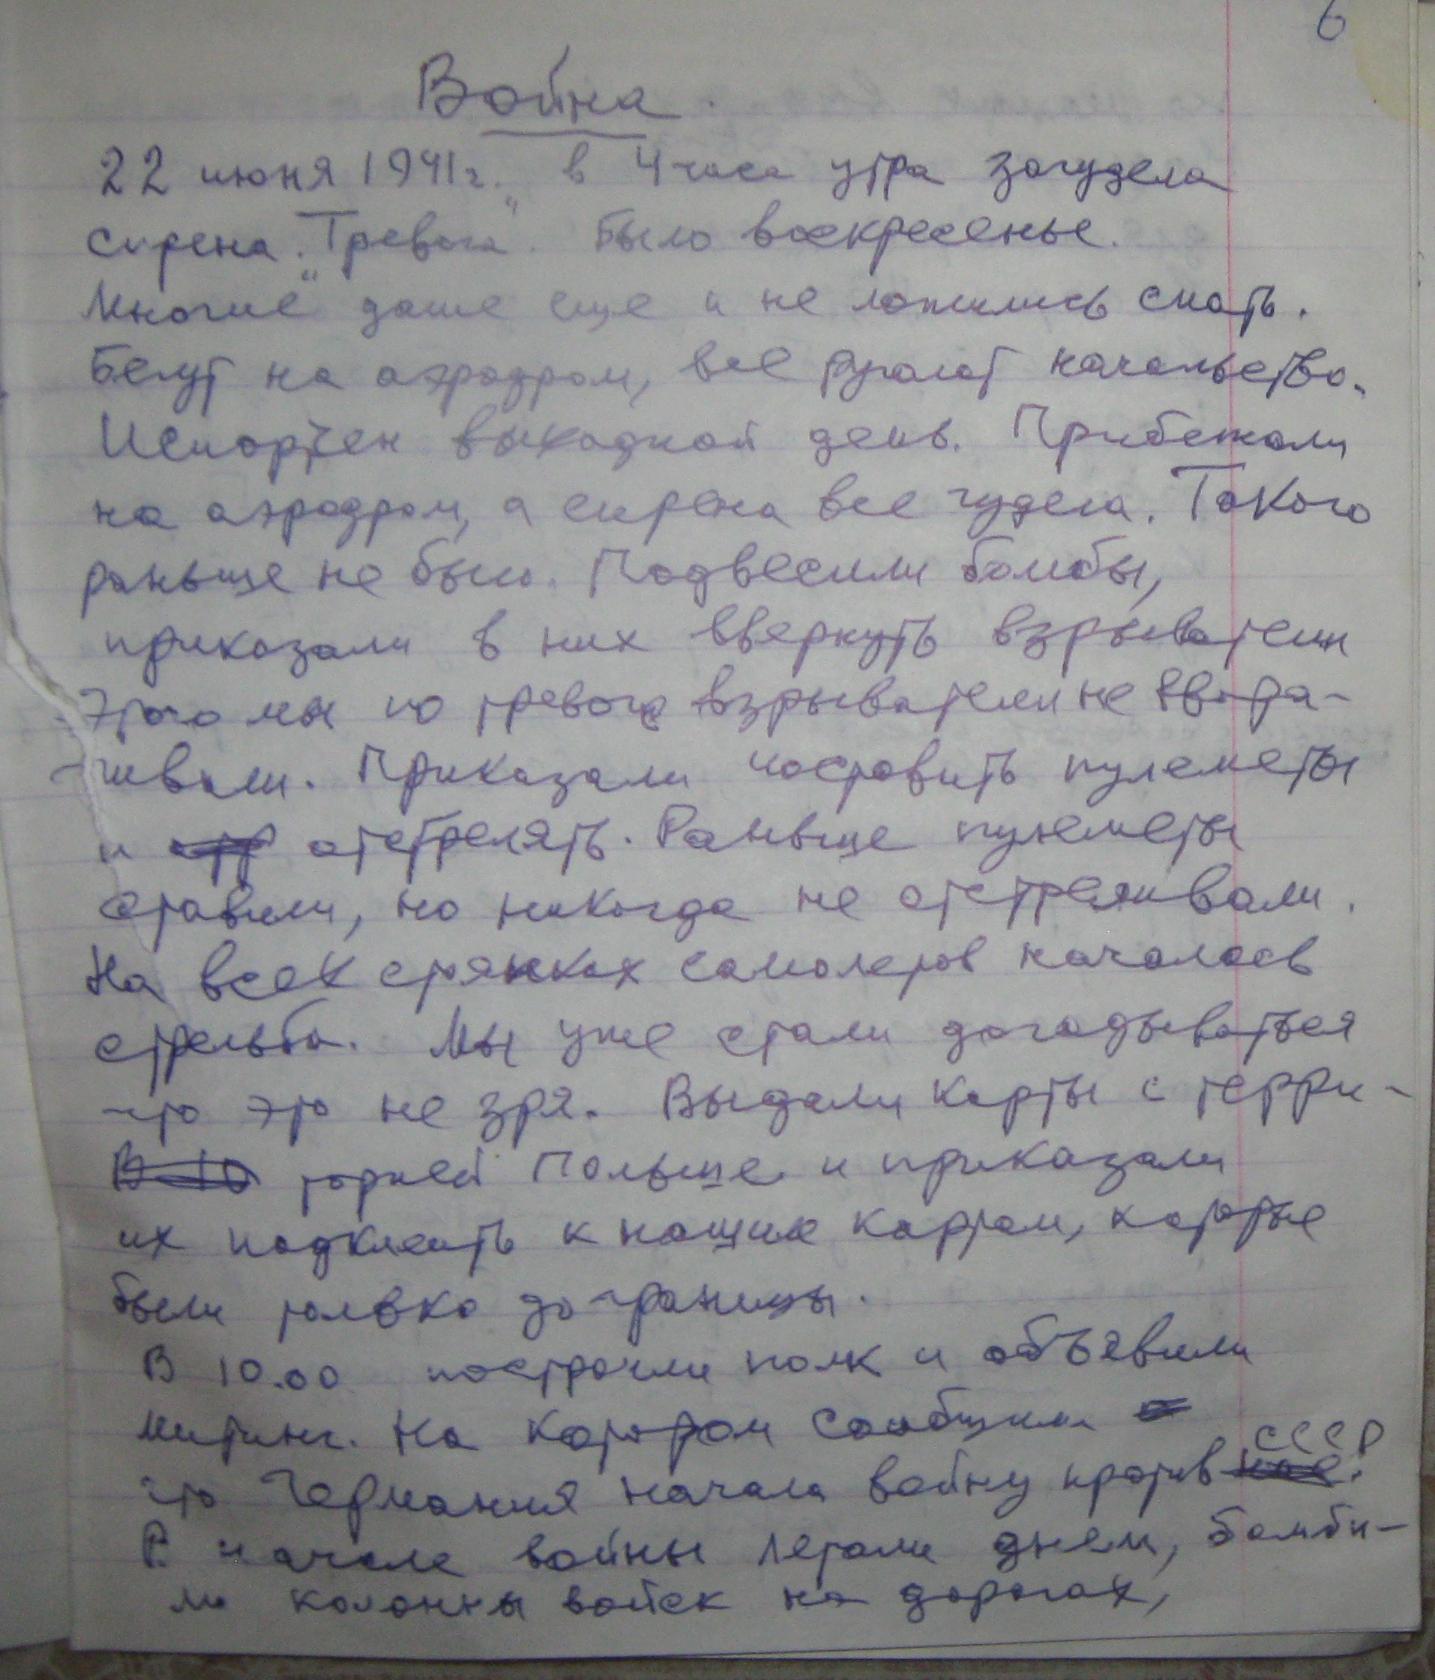 6
Война.
22 июня 1941г. в 4 часа утра загудела
сирена. "Тревога". Было воскресенье.
Многие даже еще и не ложились спать.
Бегут на аэродром, все ругают начальство.
Испорчен выходной день. Прибежали
на аэродром, а сирена все гудела. Такого
раньше не было. Подвесили бомбы,
приказали в них ввернуть взрыватели
Этого мы по тревоге взрыватели не ввора-
чивали. Приказали поставить пулеметы
и отстрелять. Раньше пулеметы
ставили, но никогда не отстреливали.
На всех стоянках самолетов началась
стрельба. Мы уже стали догадываться
что это не зря. Выдали карты с терри-
В 10 торией Польше и приказали
их подклеить к нашим картам, которые
были только до границы.
В 10.00 построили полк и объявили
митинг. На котором сообщили
что Германия начала войну против СССР.
В начале войны летали днем, бомби-
ли колонны войск на дорогах,